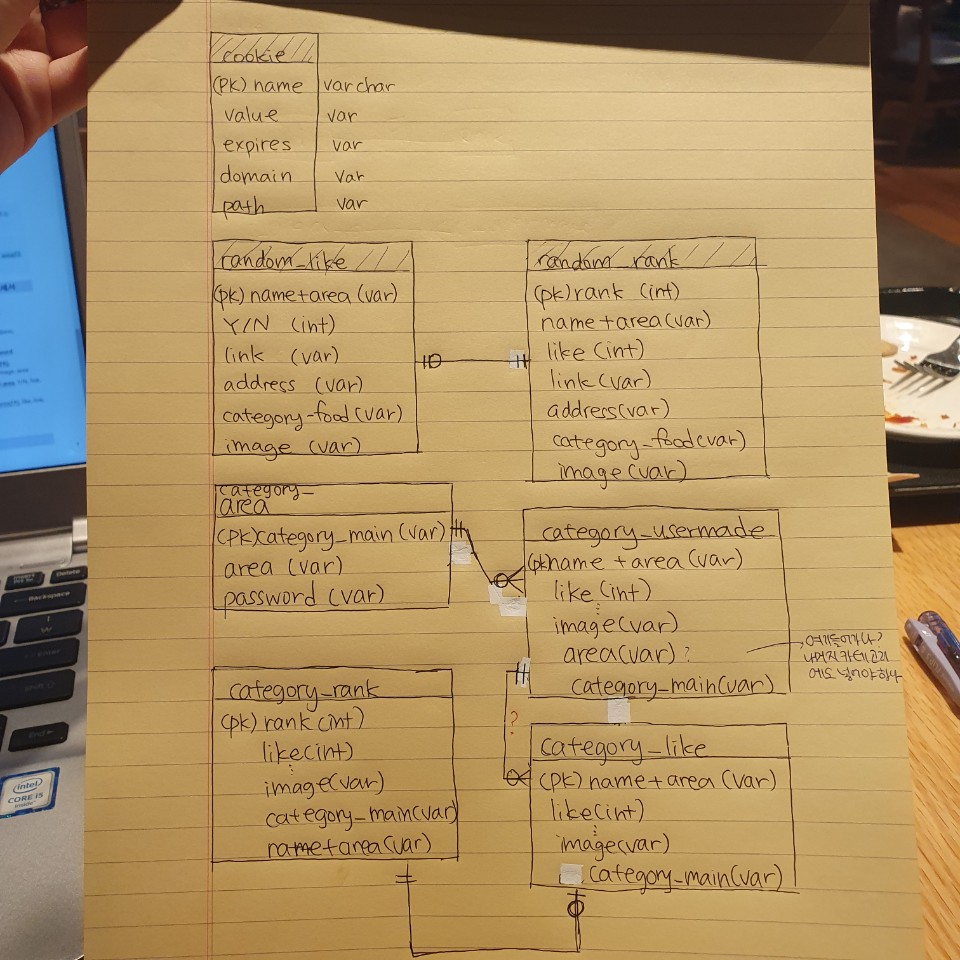 cookie
(PK) name varchar
value var
expires var
domain var
path var
random_like
(pk) name+area (var)
Y/N (int)
link (var)
address (var)
category-food(var)
image (var)
random_rank
(pk) rank (int)
name+area(var)
like (int)
link (var)
address(var)
category_food(var)
image(var)
category_
area
(PK)category_main (var)
area (var)
password (var)
category_usermade
(pk)name + area (var)
like (int)
image(var)
area(var) ?
category_main(var)
여기들어가나?
나머지카테고리
에도 넣어야하나
category_rank
(pk) rank (int)
like(int)
image(var)
category_main(var)
name+area(var)
?
category_like
(PK) name+area (var)
like(int)
image(var)
category_main(var)
intel
CORE i5
inside
Delete
Backspace
Shift
End